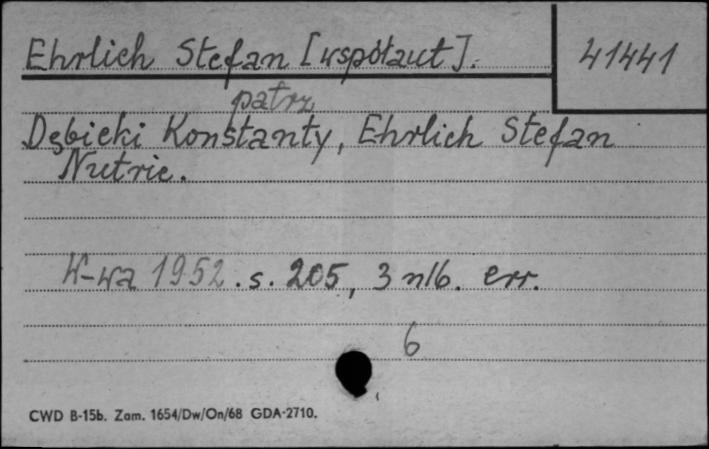 Ehrlich Stefan [współaut].
41441
patrz
Dębicki Konstanty, Ehrlich Stefan
Nutrie.
W-wa 1952. s. 205, 3 nlb. err.
6
CWD B-15b. Zam. 1654/Dw/On/68 GDA-2710.